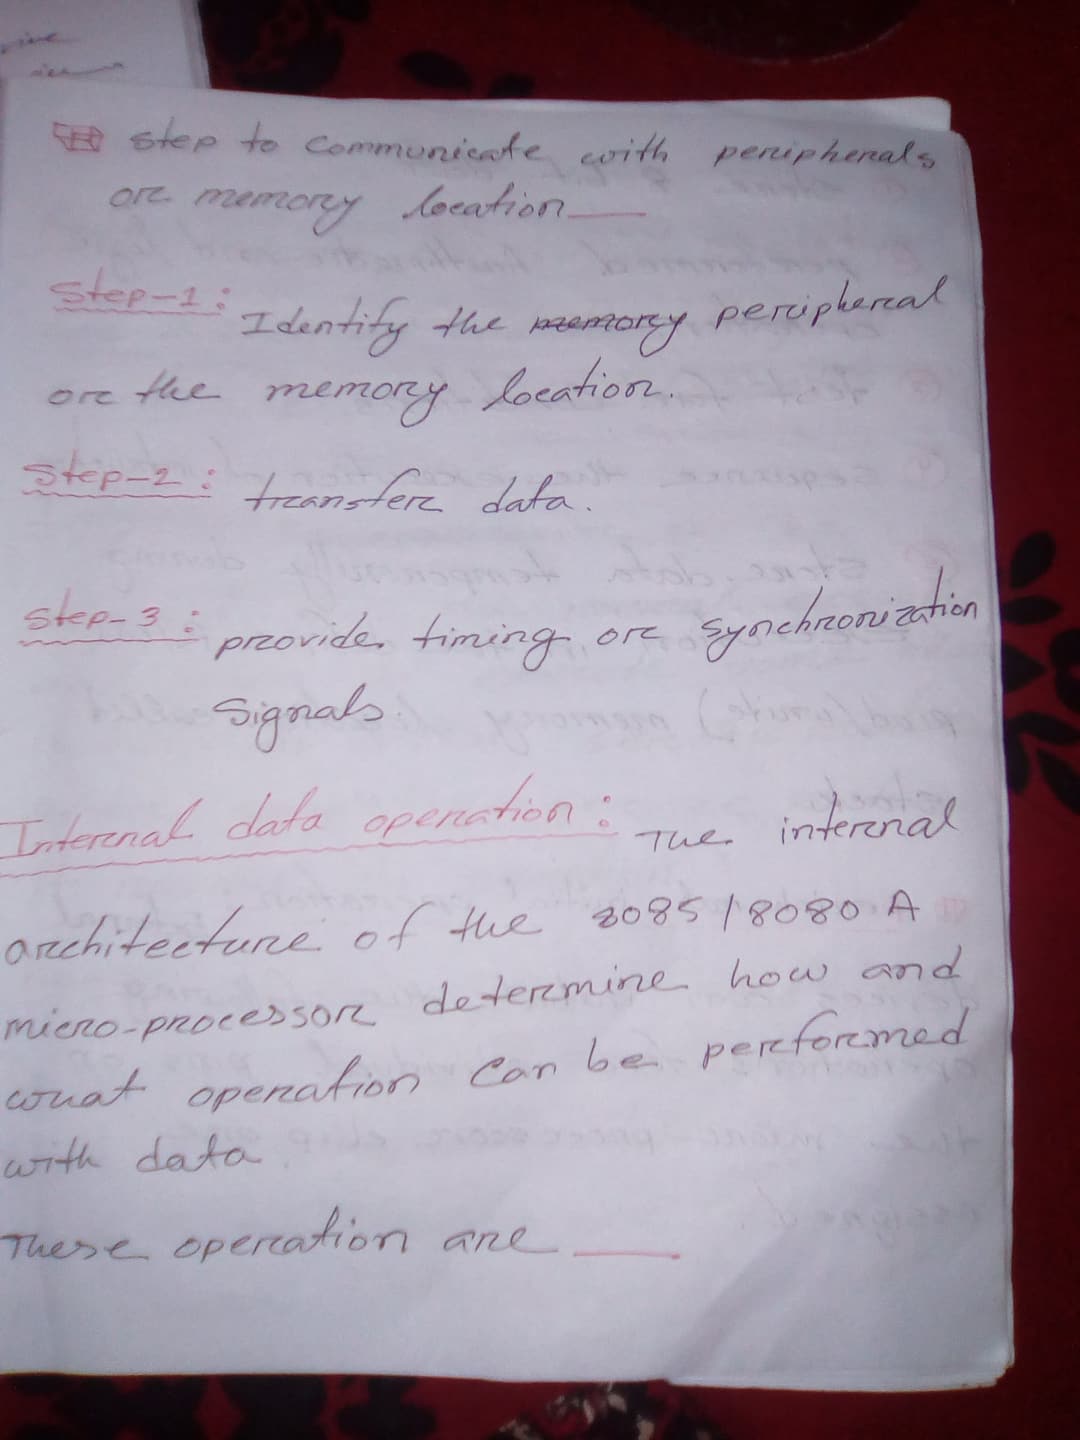 step to communicate with peripherals
or memory location
Step-1:
Identify the memory peripheral
or the memory location.
Step-2:
transfer data.
Step-3:
provide timing or synchronization
Signals.
Internal data operation: The internal
architecture of the 8085/8080 A
micro-processor determine how and
what operation can be performed
with data
These operation are